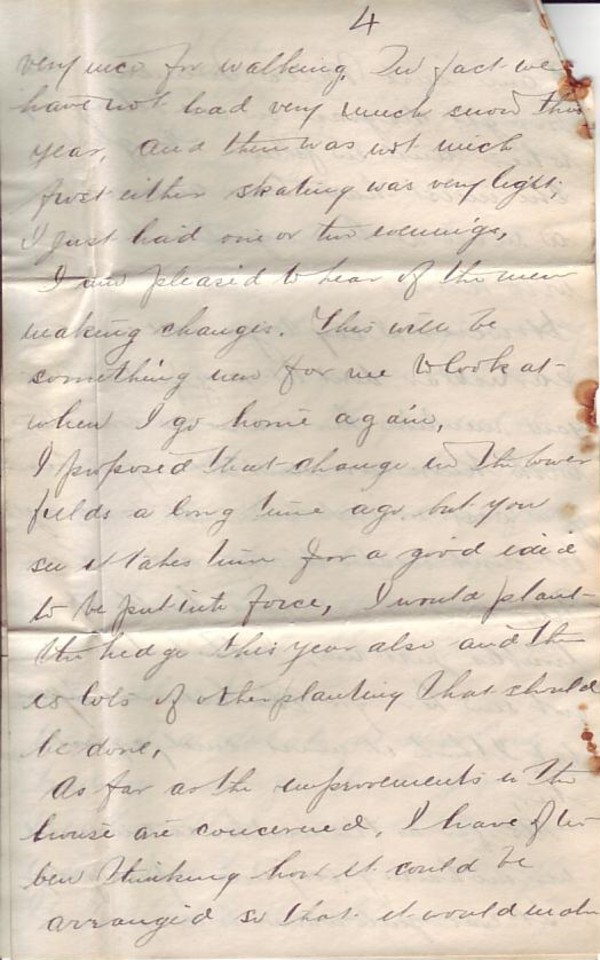 4
very nice for walking. In fact we
have not had very much snow this
year, and there was not much
frost either skating was very light;
I just had one or two evenings,
I am pleased to hear of the men
making changes. This will be
something new for me to look at
when I go home again,
I proposed that change in the lower
fields a long time ago. but you
see it takes time for a good idid
to be put into force, I would plant
the hedge this year also and there
is lots of other planting that should
be done,
As far as the improvements in the
house are concerned, I have often
ben thinking how it could be
arranged so that it would make